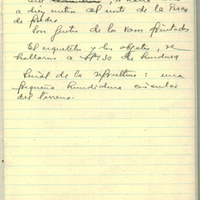 a diez metros al norte de la Pieza
de piedra
Son fustes de la vara pintados
El esqueleto y los objetos, se
hallaron a 1m 30 de hondura
Señal de la sepultura: una
pequeña hundidura circular
del terreno.